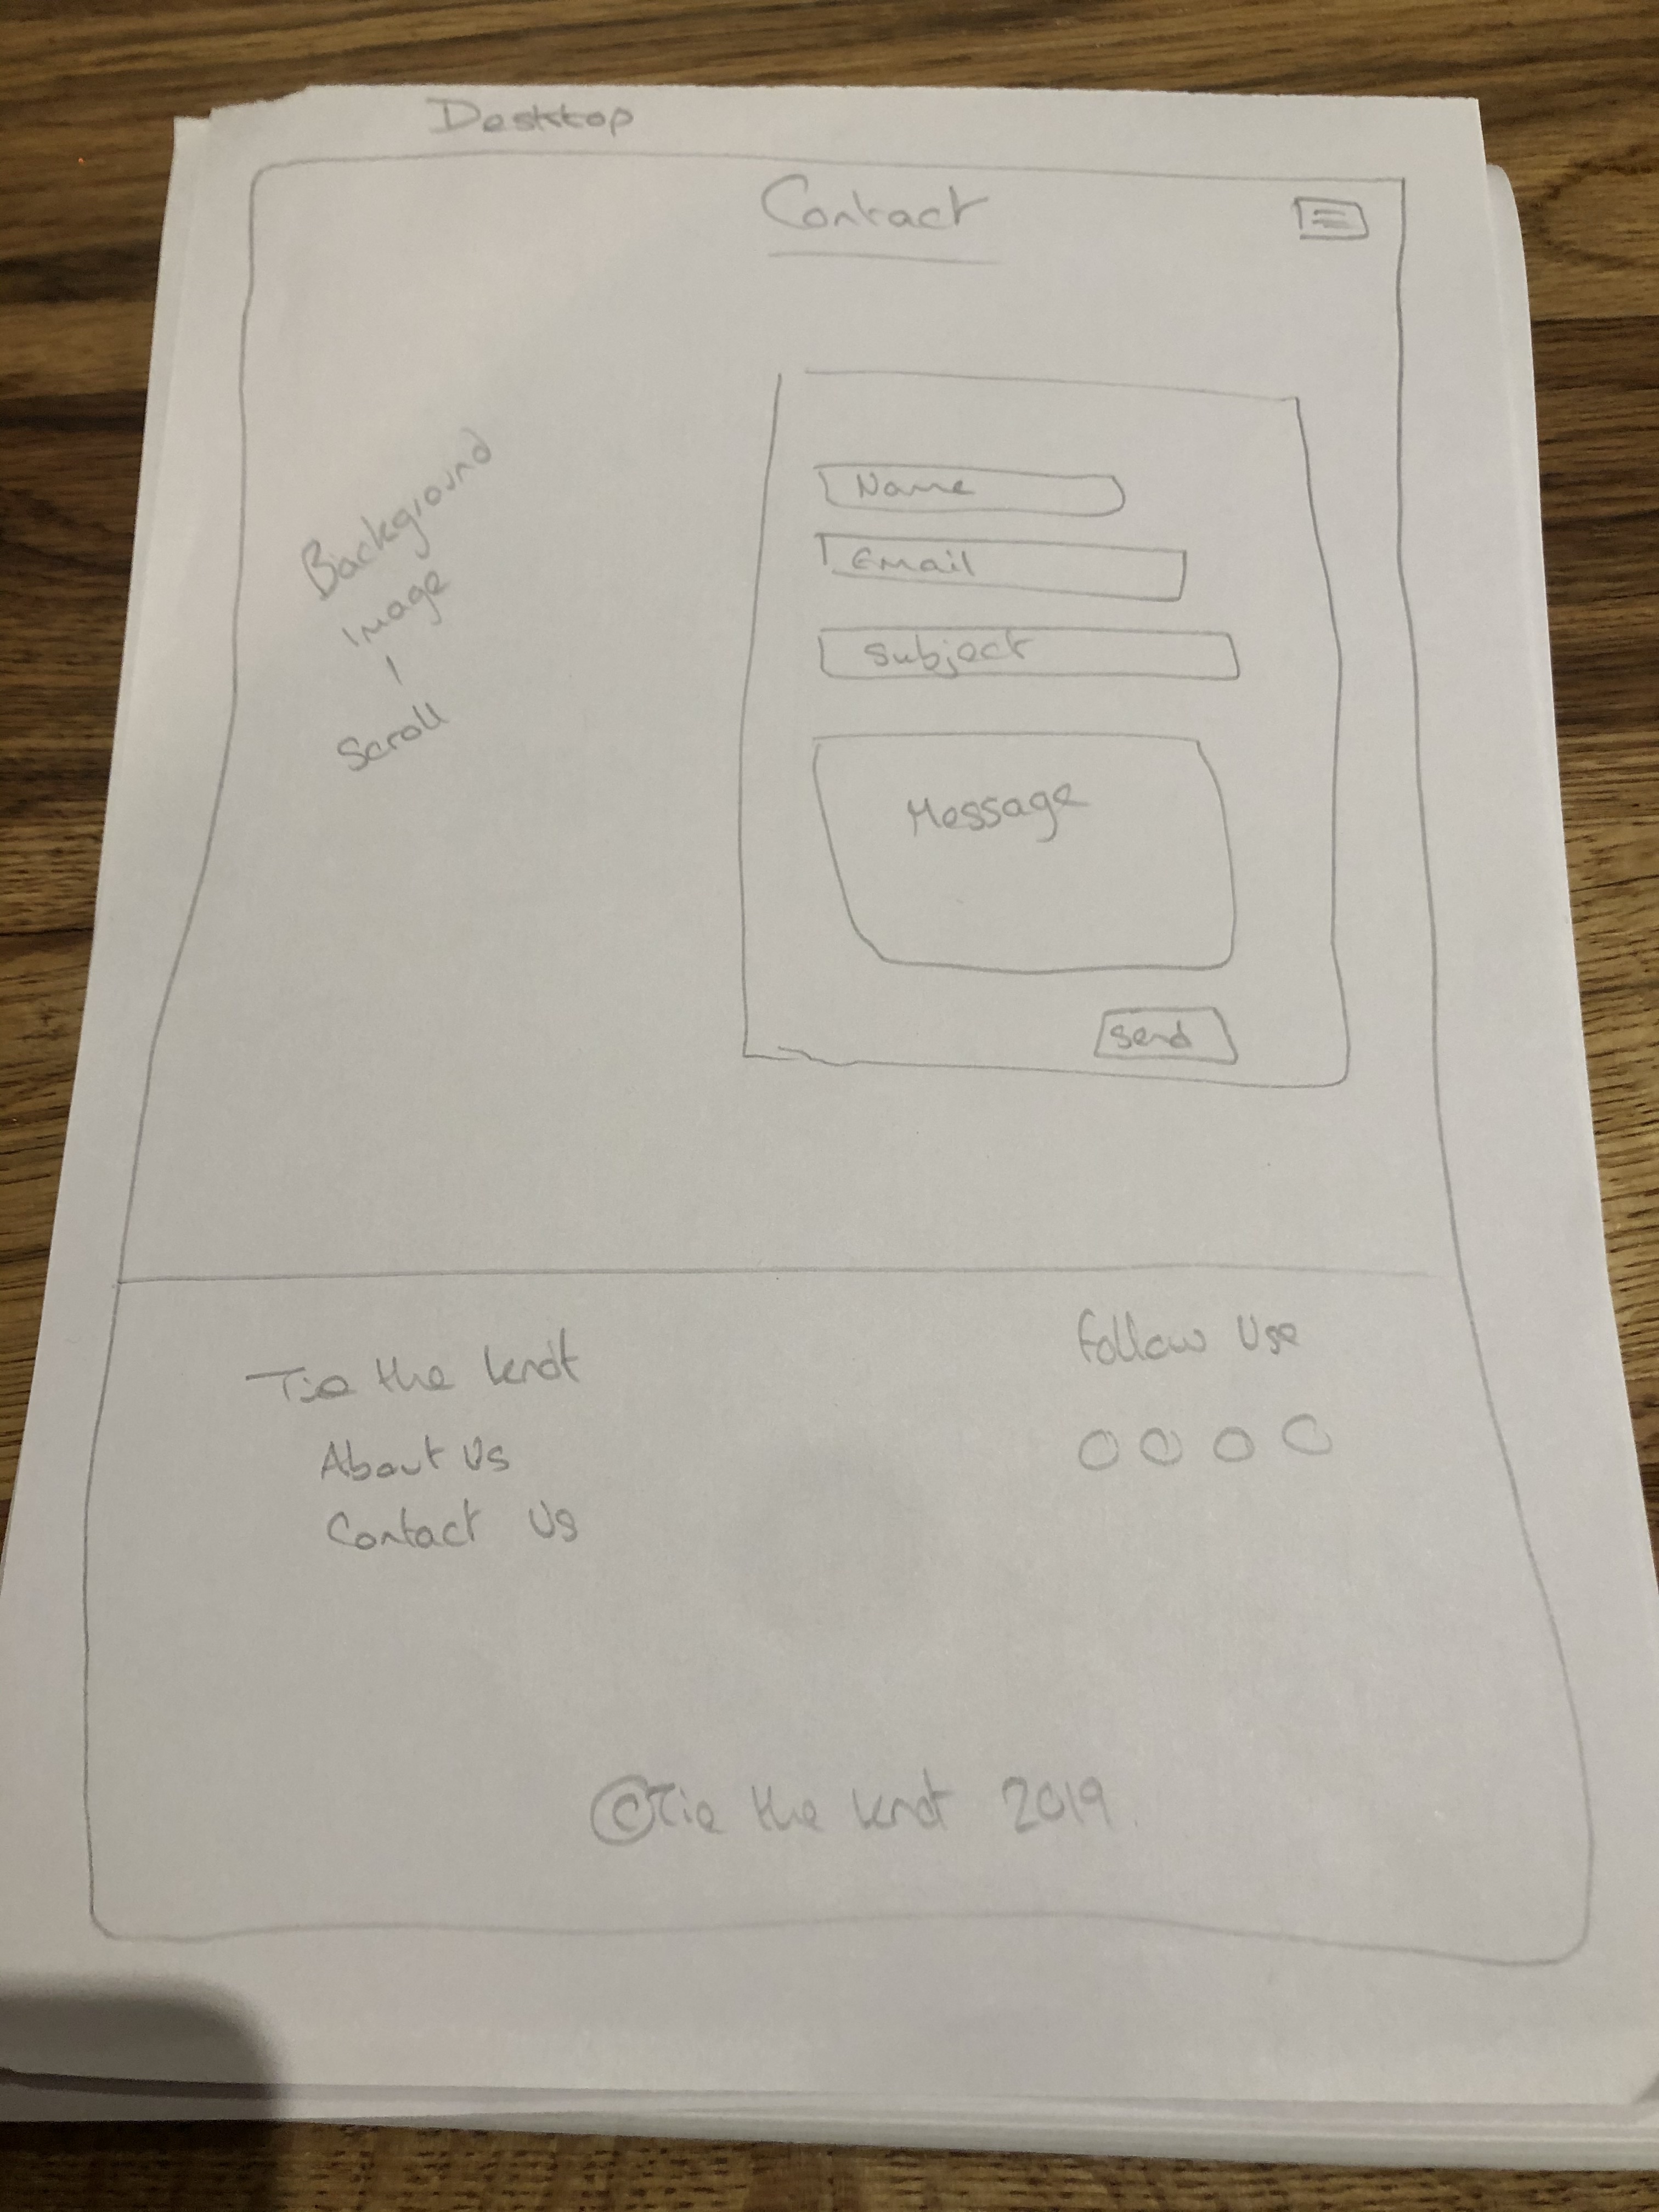 Desktop
Contact
Background
Image
Scroll
Name
Email
Subject
Message
Send
Tie the knot
About Us
Contact Us
Follow Use
© Tie the knot 2019